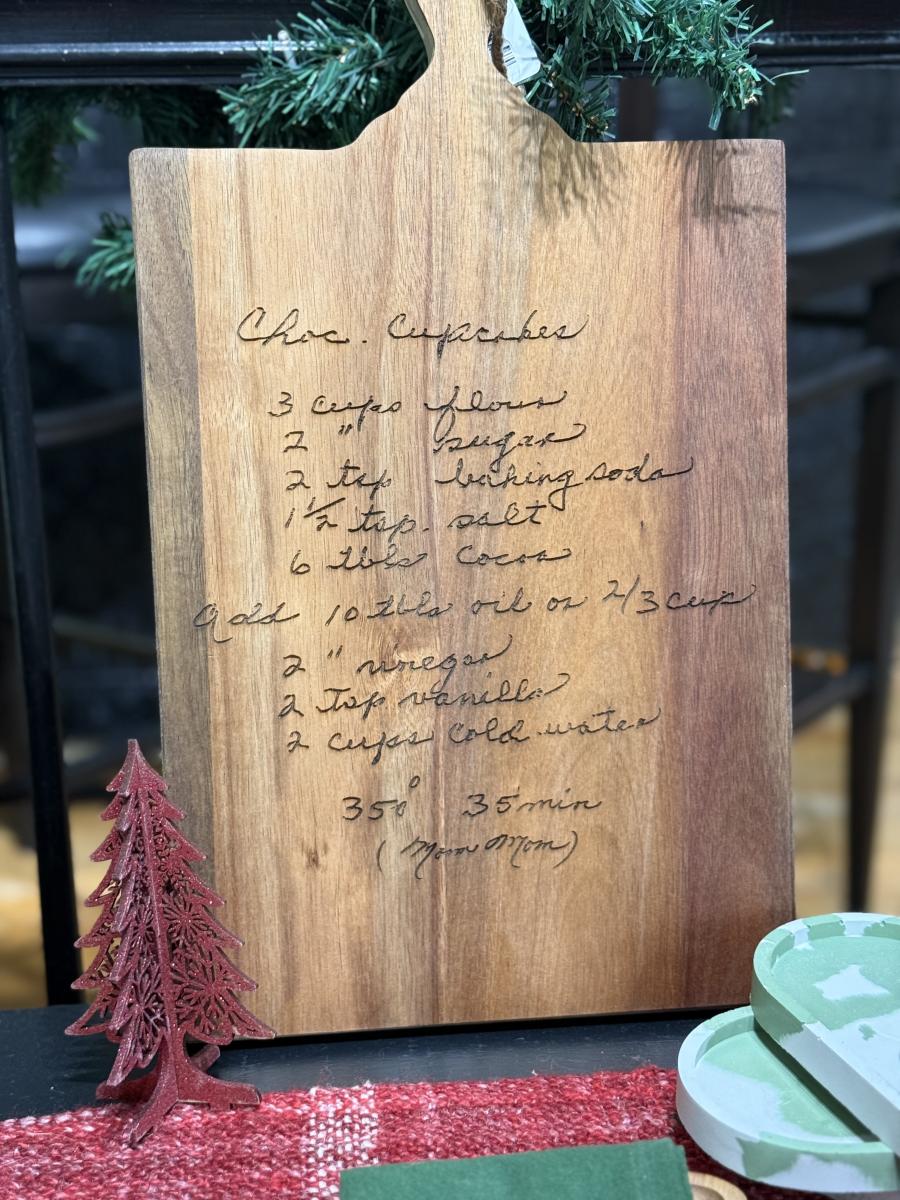 Choc. Cupcakes
3 cups flour
2 " sugar
2 tsp baking soda
1 1/2 tsp. salt
6 tbls cocoa
Add 10 tbls oil or 2/3 cup
2 " vinegar
2 tsp vanilla
2 cups cold water
350° 35 min
(Mom Mom)